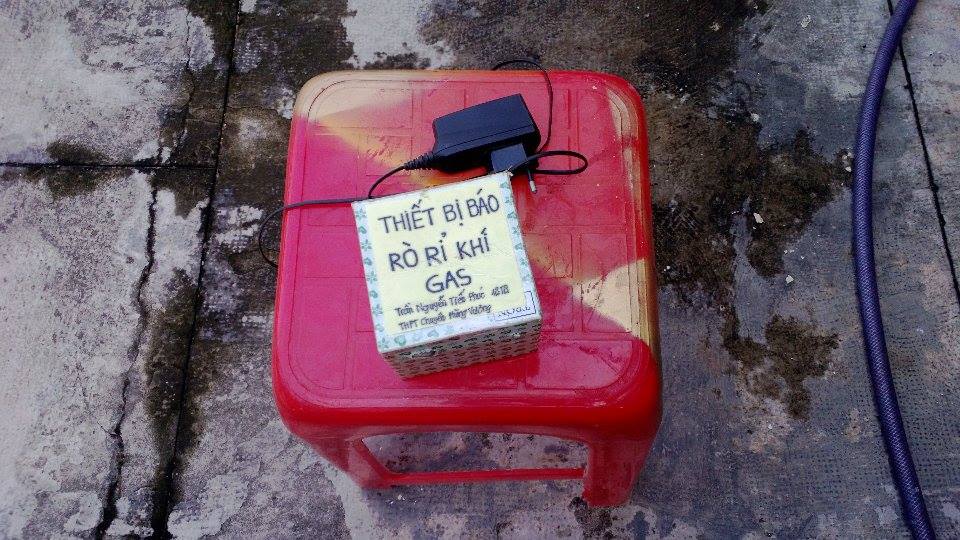 THIẾT BỊ BÁO
RÒ RỈ KHÍ
GAS
Trần Nguyễn Tiến Phúc
THPT Chuyên Hùng Vương